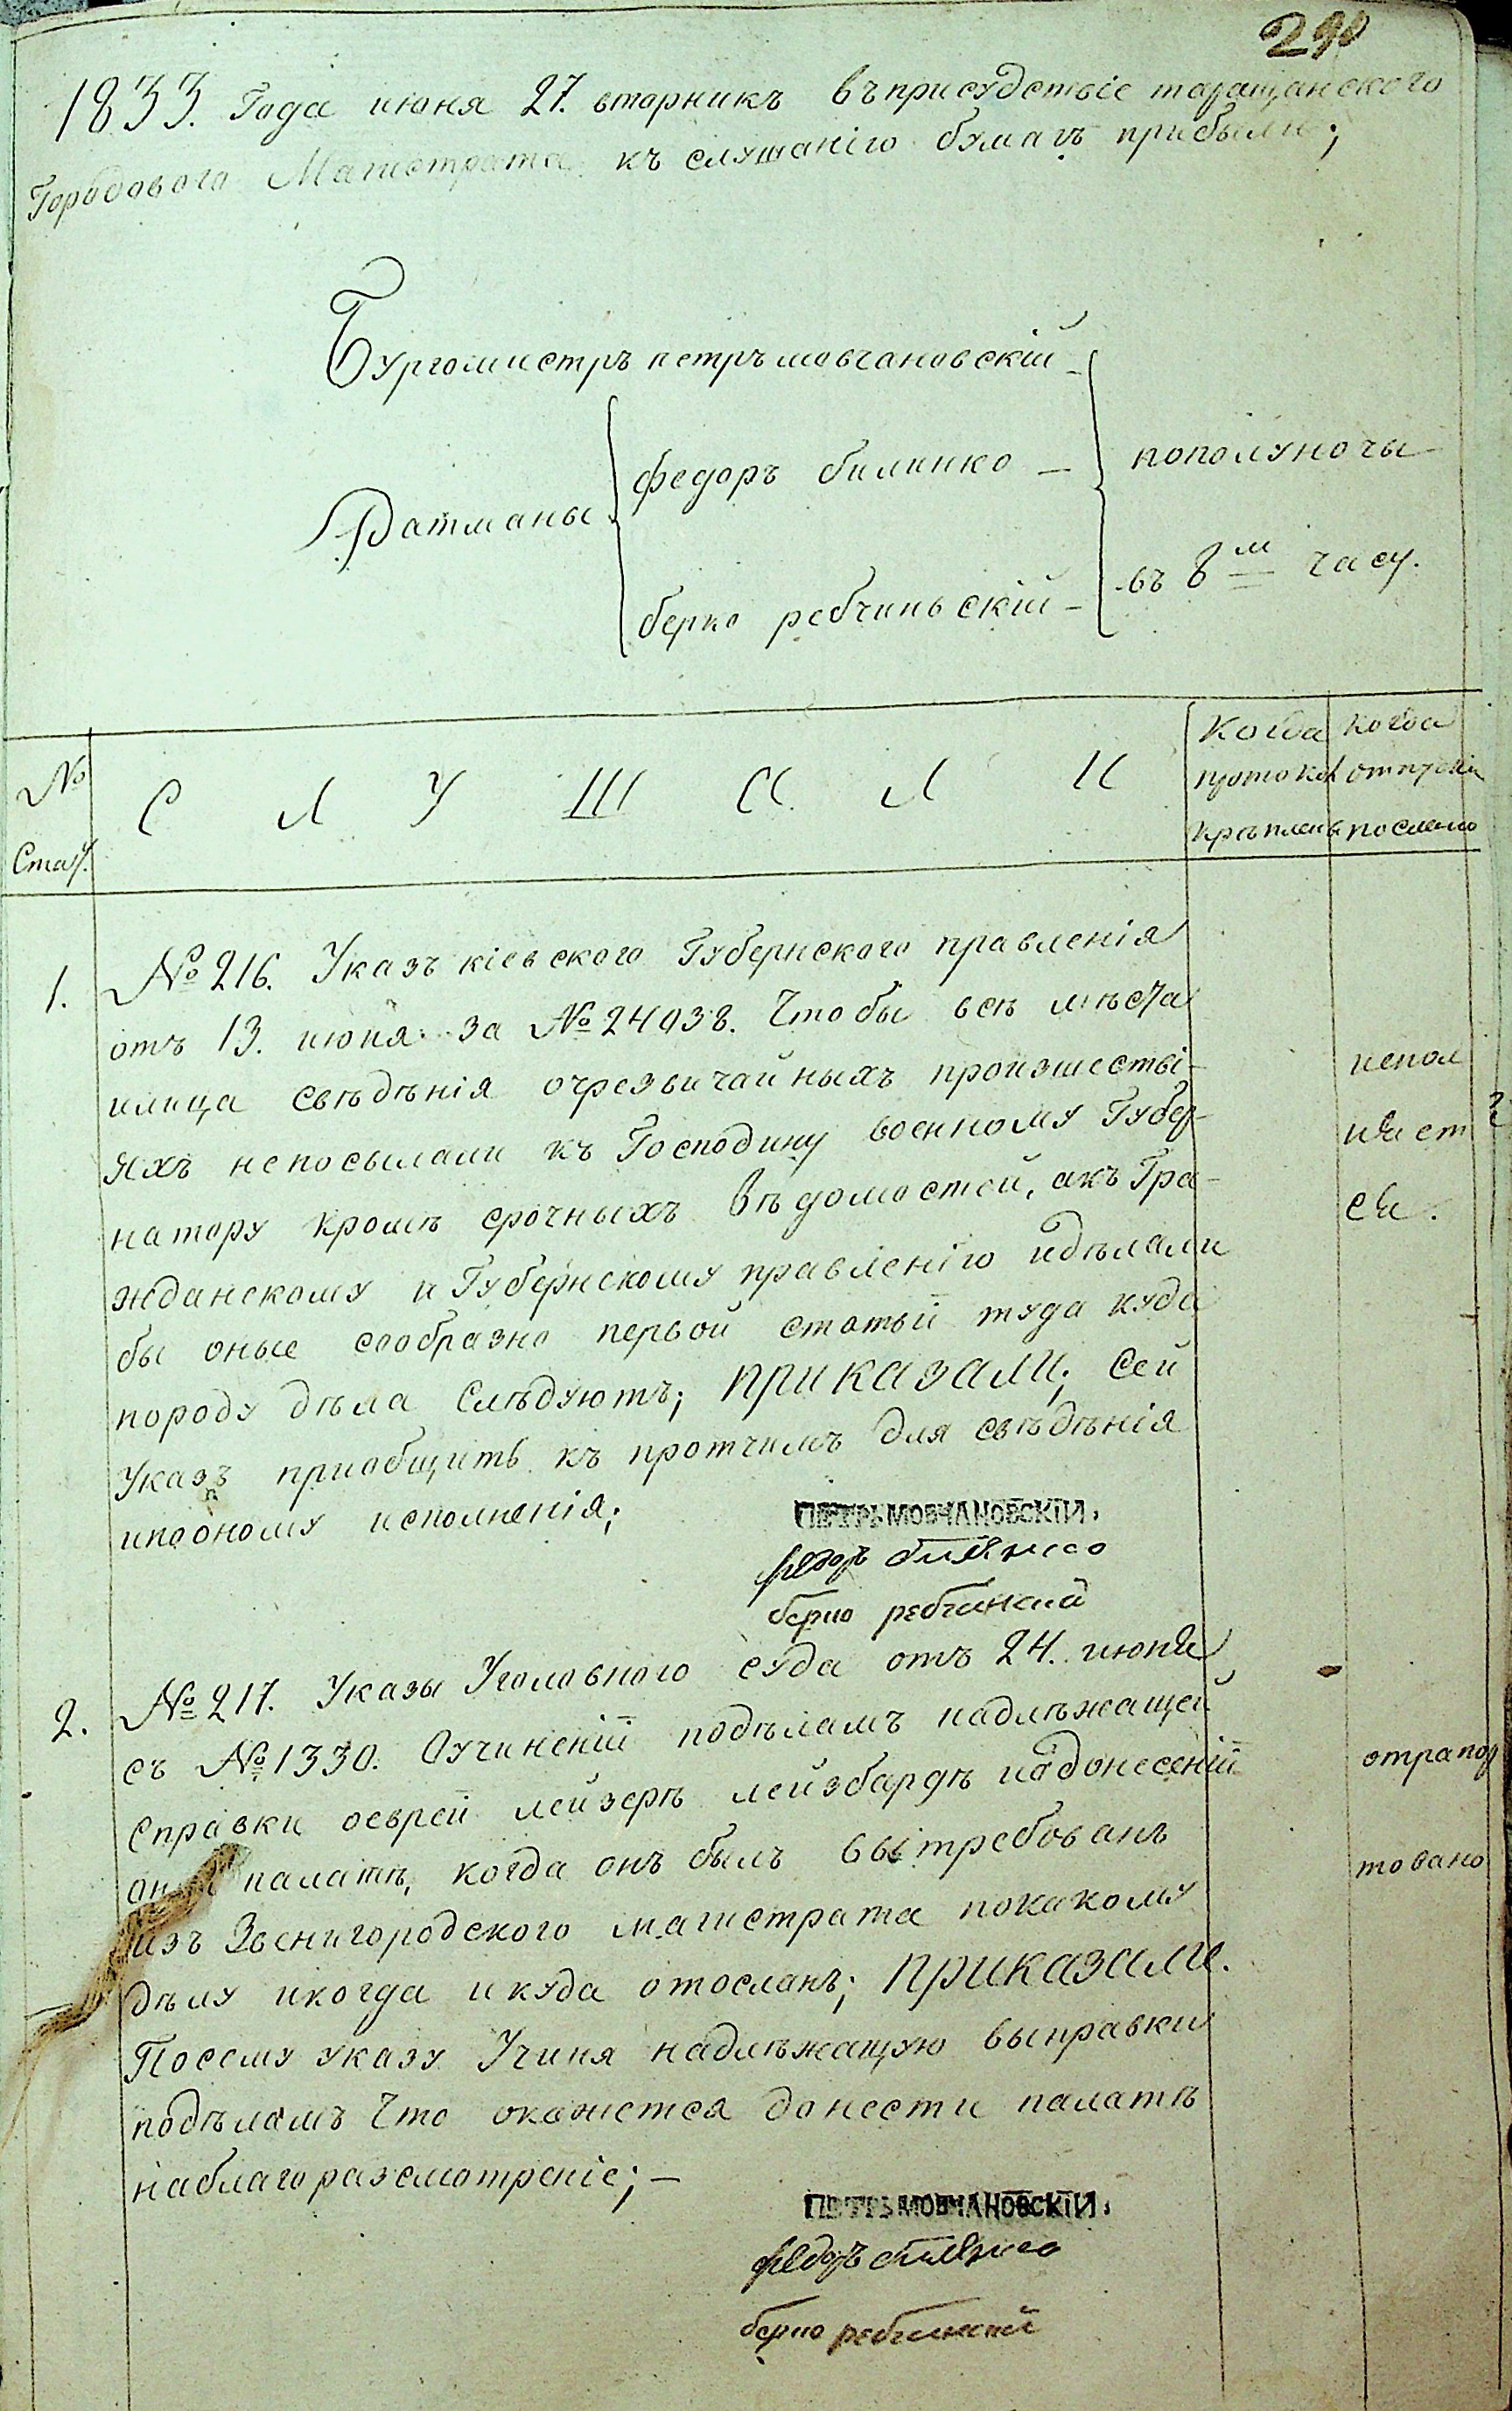 290
1833. Года июня 27. вторникъ въприсудствіе таращанского
Городового Магистрата къ слушанію бумагъ прибыли;
Бургомистръ петръ мовчановскій
Ратманы
федоръ билинко
берко ребчиньскій
пополуночы
въ 8м часу.
№ Стат.
С Л У Ш А Л И
Когда протокол крѣпленъ
когда отпускъ послано
1. № 216. Указъ кіевского Губернского правленія
отъ 13. июня за № 24938. Чтобы всѣ мѣста
илица свѣдѣнія очрезвичайныхъ произшестві-
яхъ непосылали къ Господину военному Губер-
натору кромѣ срочныхъ вѣдомостей, акъ Гра-
жданскому и Губернскому правленію идѣлали
бы оные сообразно первой статьи туда куда
породу дѣла Слѣдуютъ; приказали; Сей
Указъ приобщить къ протчимъ для свѣдѣнія
ипооному исполненія;
испол
няет
ся.
ПЕТРЪ МОВЧАНОВСКІЙ.
федоръ билинко
берко ребчинский
2. № 217. Указы Уголовного суда отъ 24. июня
съ № 1330. Оучиненіи подѣламъ надлѣжащей
справки оеврей лейзерѣ лейзбардѣ иодонесеніи
палатѣ, когда онъ былъ вытребованъ
изъ Звенигородского магистрата покакому
дѣлу икогда икуда отосланъ; приказали.
Посему указу Учиня надлѣжащую выправки
подѣламъ Что окажется донести палатѣ
наблагоразсмотреніе;
отрапор
товано
ПЕТРЪ МОВЧАНОВСКІЙ.
федоръ билинко
берко ребчинский